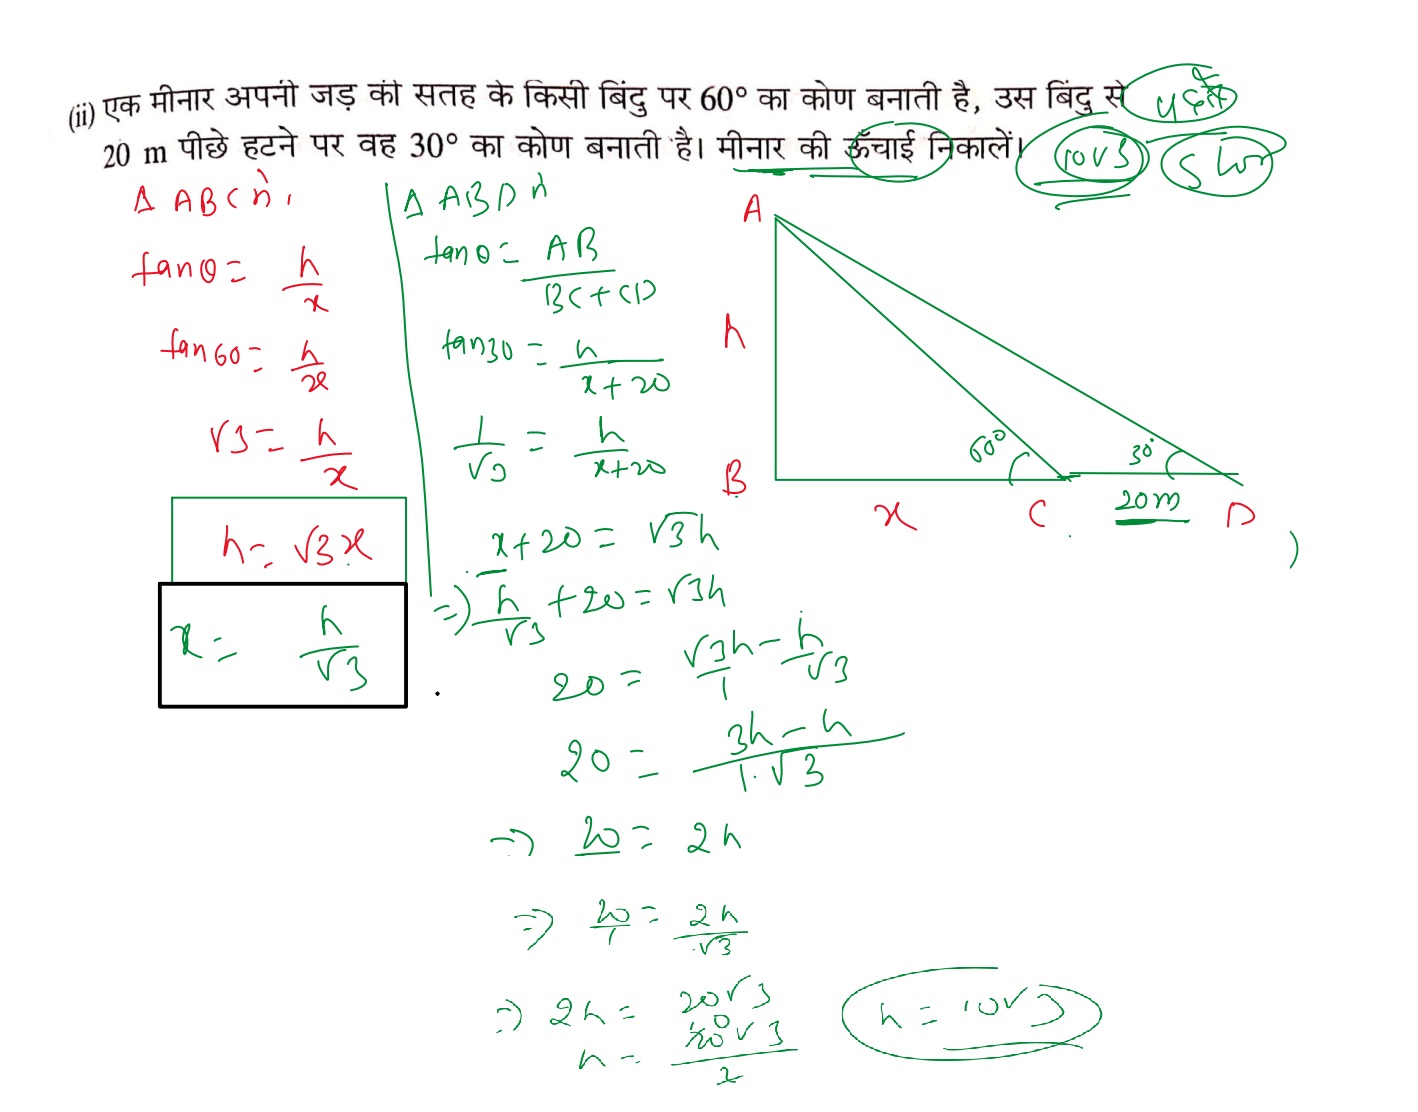 (ii) एक मीनार अपनी जड़ की सतह के किसी बिंदु पर 60° का कोण बनाती है, उस बिंदु से
20 m पीछे हटने पर वह 30° का कोण बनाती है। मीनार की ऊँचाई निकालें।
10√3
Δ ABC में,
tanθ = h/x
tan60 = h/x
√3 = h/x
h = √3x
x = h/√3
Δ ABD में
tanθ = AB/BC+CD
tan30 = h/x+20
1/√3 = h/x+20
x+20 = √3h
=> h/√3 +20 = √3h
20 = √3h/1 - h/√3
20 = 3h-h/1.√3
=> 20 = 2h
=> 20/1 = 2h/√3
=> 2h = 20√3
h = 20√3/2
10
h = 10√3
A
h
B
60°
30°
x
C
20m
D
)